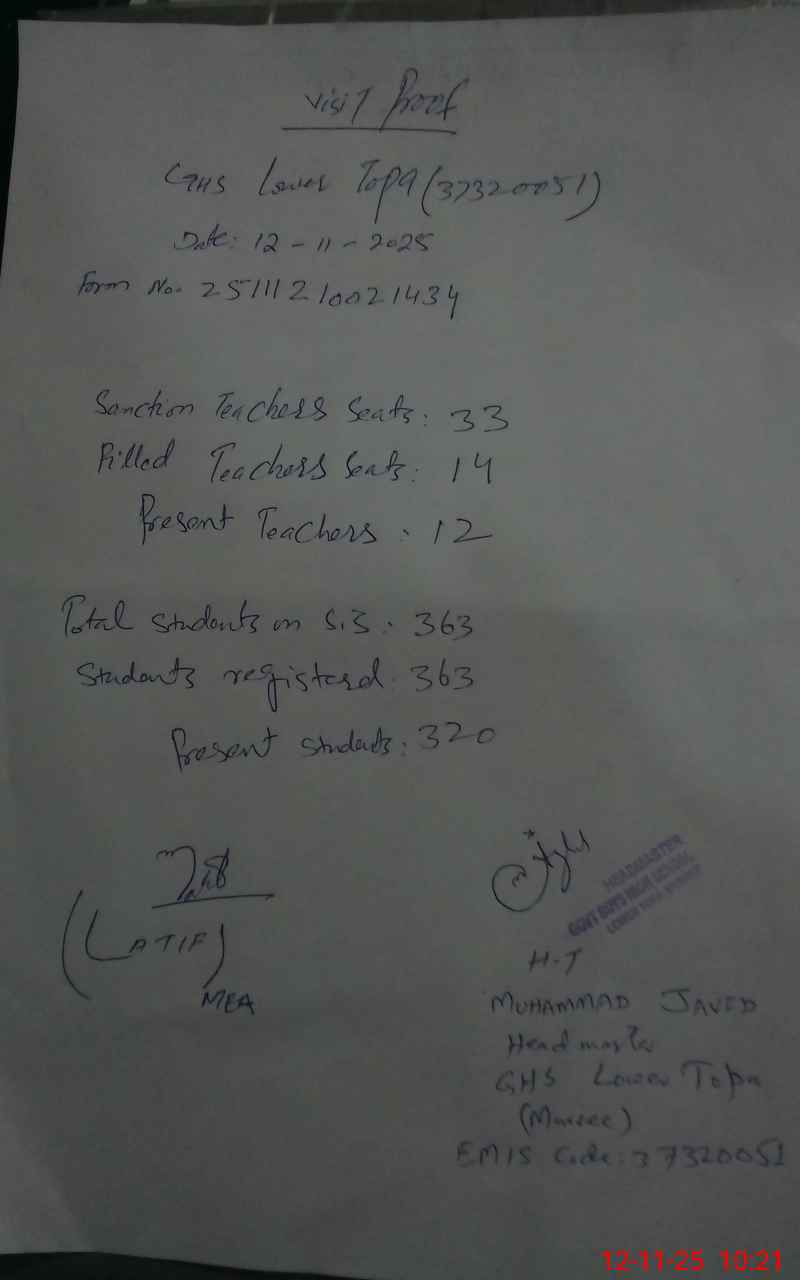 Visit Proof
GHS Lower Topa (37320051)
Date: 12-11-2025
Form No. 25111210021434
Sanction Teachers Seats: 33
Filled Teachers Seats: 14
Present Teachers: 12
Total Students on S.I.S: 363
Students registerd: 363
Present Students: 320
(LATIF)
MEA
HEADMASTER
GOVT BOYS HIGH SCHOOL
LOWER TOPA
H.T
MUHAMMAD JAVED
Headmaster
GHS Lower Topa
(Murree)
EMIS Code: 37320051
12-11-25 10:21